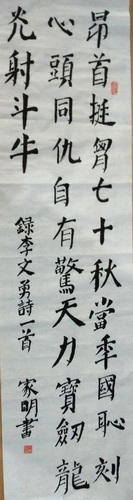 昂首挺胷七十秋當年國恥刻
心頭同仇自有驚天力寶劒龍
光射斗牛
録李文勇詩一首 家明書